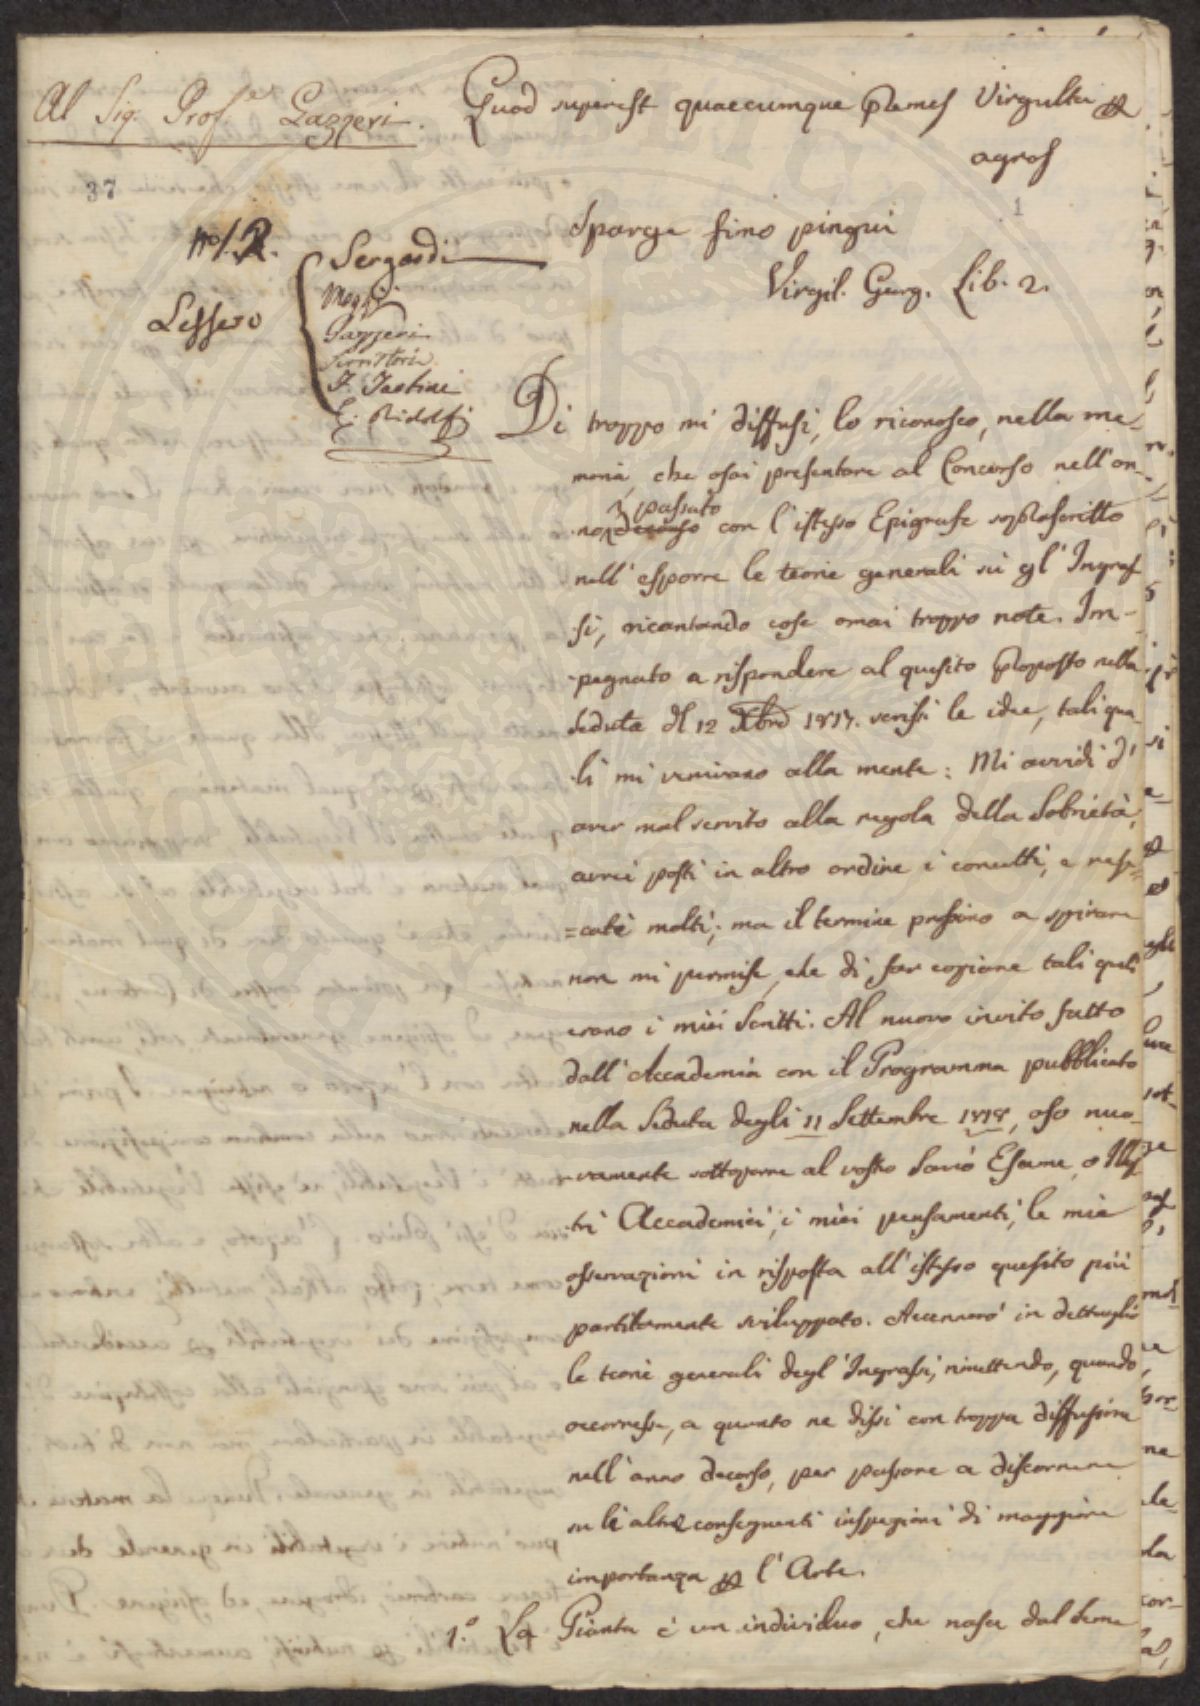 Al Sig. Prof.e Gazzeri.
Quod superest quaecumque premes Virgulta per
agros
37
1
Sparge fimo pingui
Virgil. Georg. Lib. 2.
Lessero
Sergardi
Maggi
Gazzeri
F. Tartini
C. Ridolfi
Di troppo mi diffusi, lo riconosco, nella me-
moria, che osai presentare al Concorso nell'an-
passato
no decorso con l'istesso Epigrafe soprascritto
nell'esporre le teorie generali su gl'Ingras-
si, ricantando cose omai troppo note. Im-
pegnato a rispondere al quesito proposto nella
seduta del 12 Xbre 1817. scrissi le idee, tali qua-
li mi venivano alla mente: Mi avvidi d'
aver mal servito alla regola della Sobrietà,
avrei posti in altro ordine i concetti, e rese-
=cati molti; ma il termine prossimo a spirare
non mi permise, che di far copiare tali quali
erano i miei Scritti. Al nuovo invito fatto
dall'Accademia con il Programma pubblicato
nella Seduta degli 11 Settembre 1818, oso nuo-
vamente sottoporre al vostro Savio Esame, o Illus-
tri Accademici, i miei pensamenti, le mie
osservazioni in risposta all'istesso quesito più
partitamente sviluppato. Accennerò in dettaglio
le teorie generali degl'Ingrassi, rimettendo, quando
occorresse, a quanto ne dissi con troppa diffusione
nell'anno decorso, per passare a discorrere
su le altre conseguenti inspezioni di maggiore
importanza per l'Arte.
1.° La Pianta è un individuo, che nasce dal seme